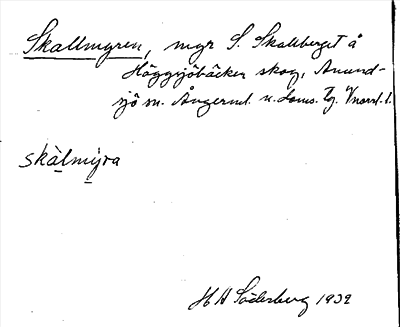 Skallmyren, myr S. Skallberget å
Häggsjöbäcken skog, Anund-
sjö sn. Ångerml. n. Doms.
skàlmỳra
H A Söderberg 1932